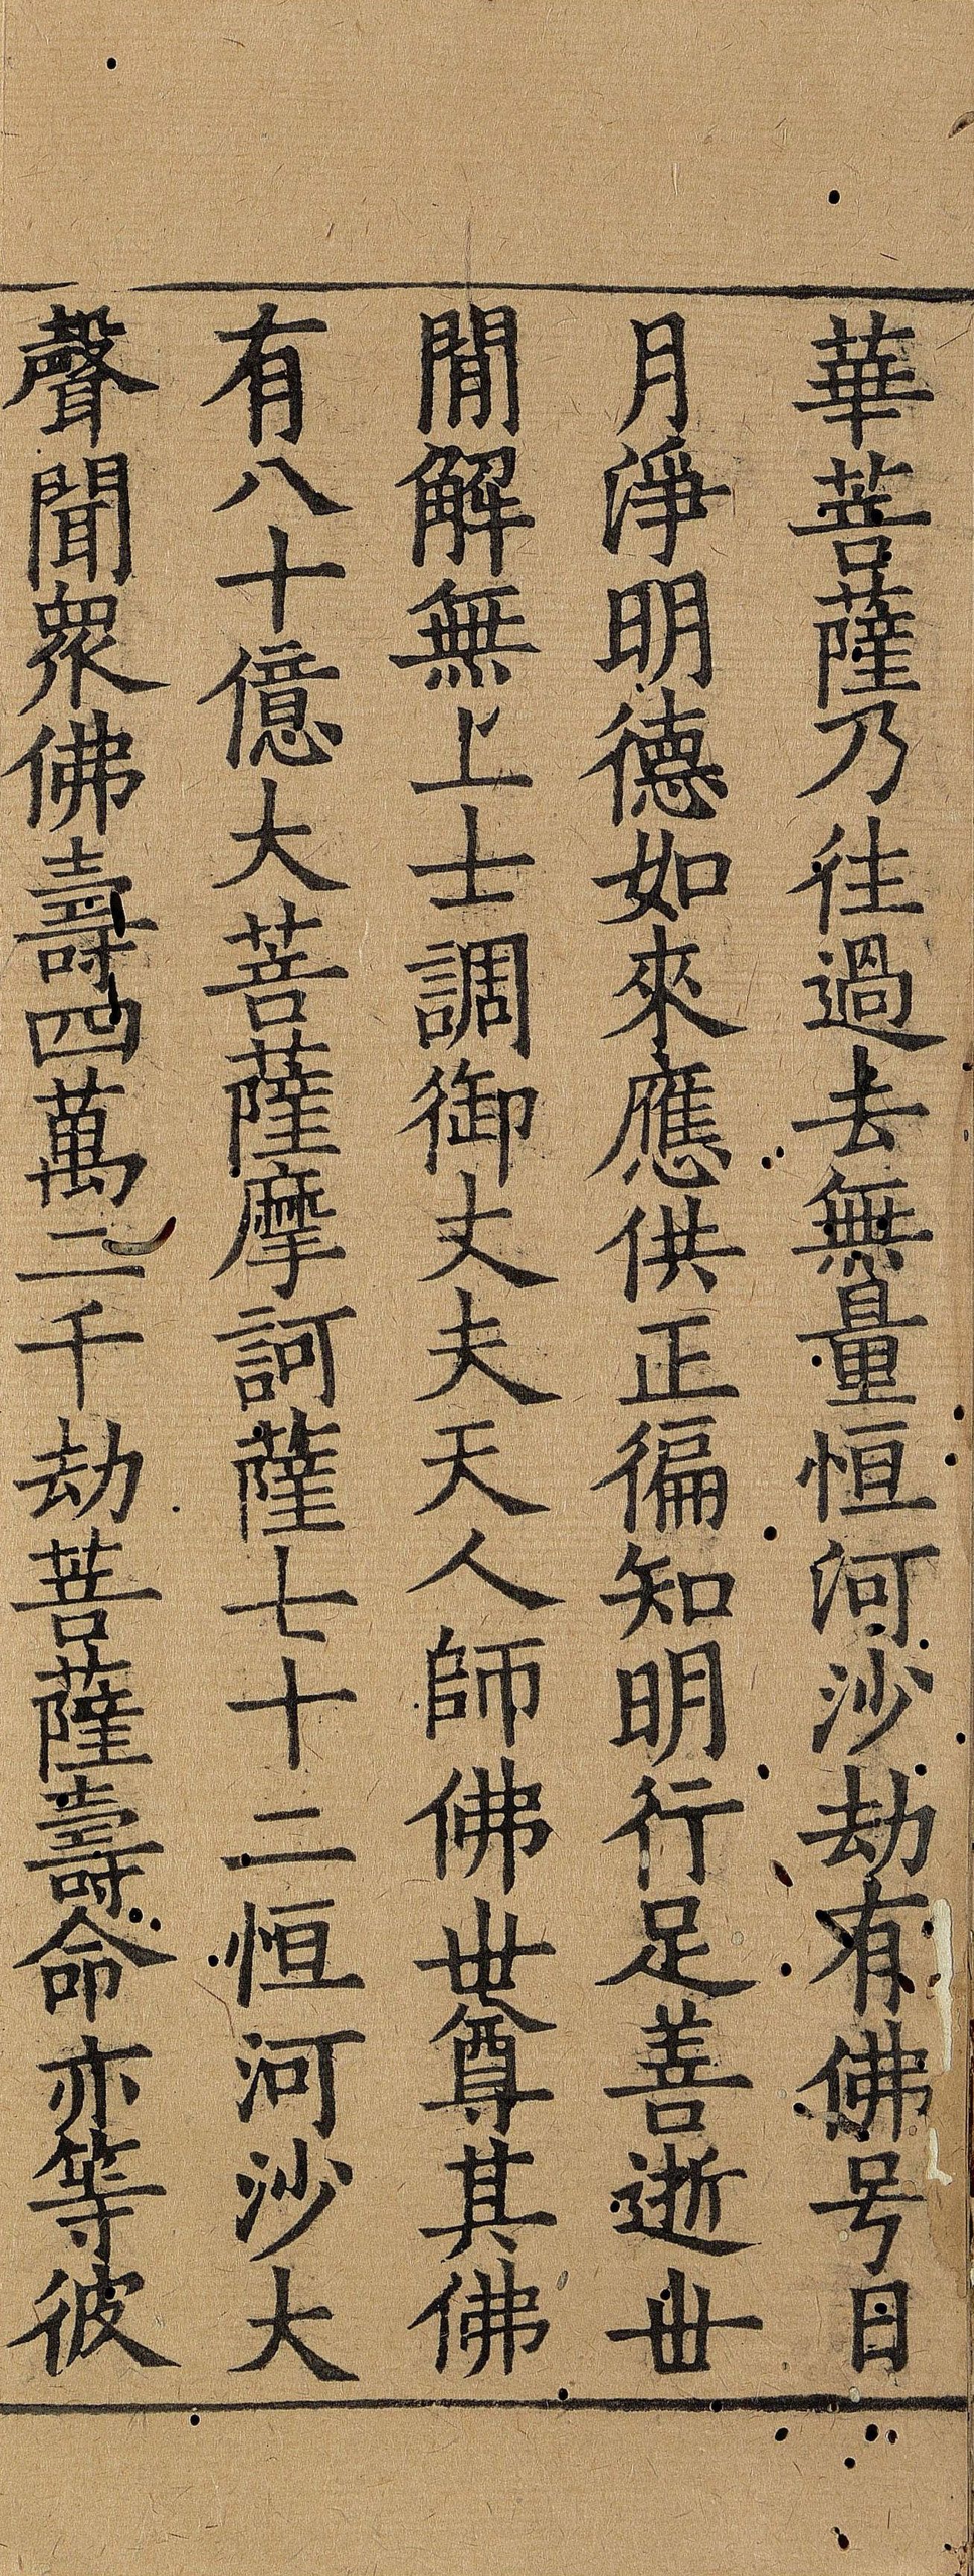 華菩薩乃往過去無量恒河沙劫有佛号日
月淨明德如來應供正徧知明行足善逝世
閒解無上士調御丈夫天人師佛世尊其佛
有八十億大菩薩摩訶薩七十二恒河沙大
聲聞衆佛壽四萬二千劫菩薩壽命亦等彼